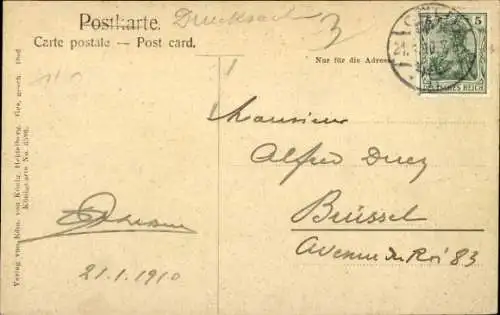 Postkarte. Drucksache
Carte postale — Post card.
3
Nur für die Adresse
5
DEUTSCHES REICH
21.1.10
Monsieur
Alfred Duey
Brüssel
Avenue du Roi 83
21.1.1910
Verlag von Edm. von König, Heidelberg. Ges. gesch.
Königskarte No.